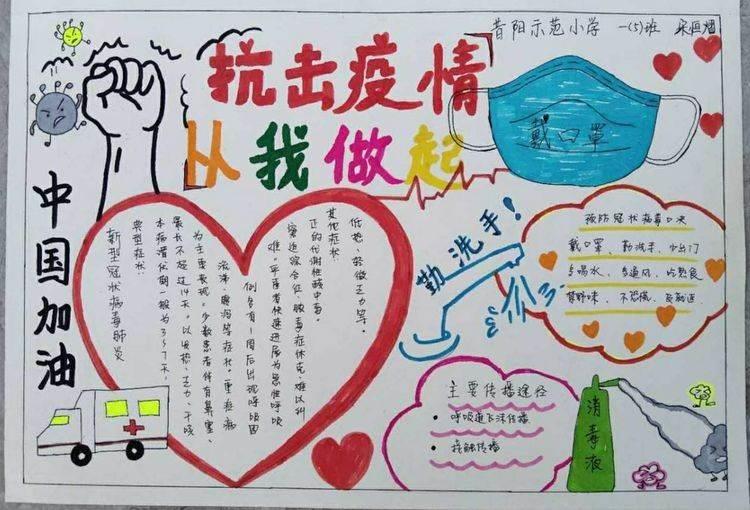 昔阳示范小学 一(5)班
抗击疫情
从我做起
戴口罩
中国加油
新型冠状病毒肺炎
典型症状:
本病潜伏期一般为3~7天,
最长不超过14天。以发热、乏力、干咳
为主要表现。少数患者伴有鼻塞、
流涕、腹泻等症状。重症病
例多在1周后出现呼吸困
难。严重者快速进展为急性呼吸
窘迫综合征、脓毒症休克、难以纠
正的代谢性酸中毒。
其他症状:
低热、轻微乏力等。
勤洗手!
预防冠状病毒口决
戴口罩、勤洗手、少出门
多喝水、多通风、吃熟食
禁野味、不恐慌、
主要传播途径
呼吸道飞沫传播
接触传播
消毒液